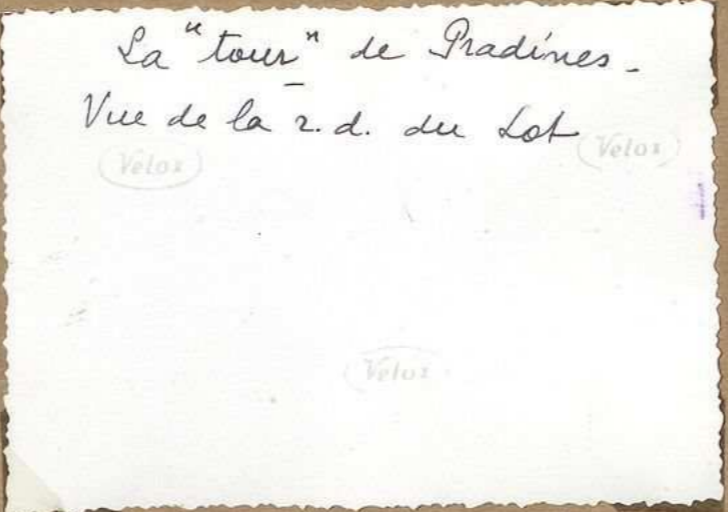 La "tour" de Pradines -
Vue de la r. d. du Lot
Velox
Velox
Velox